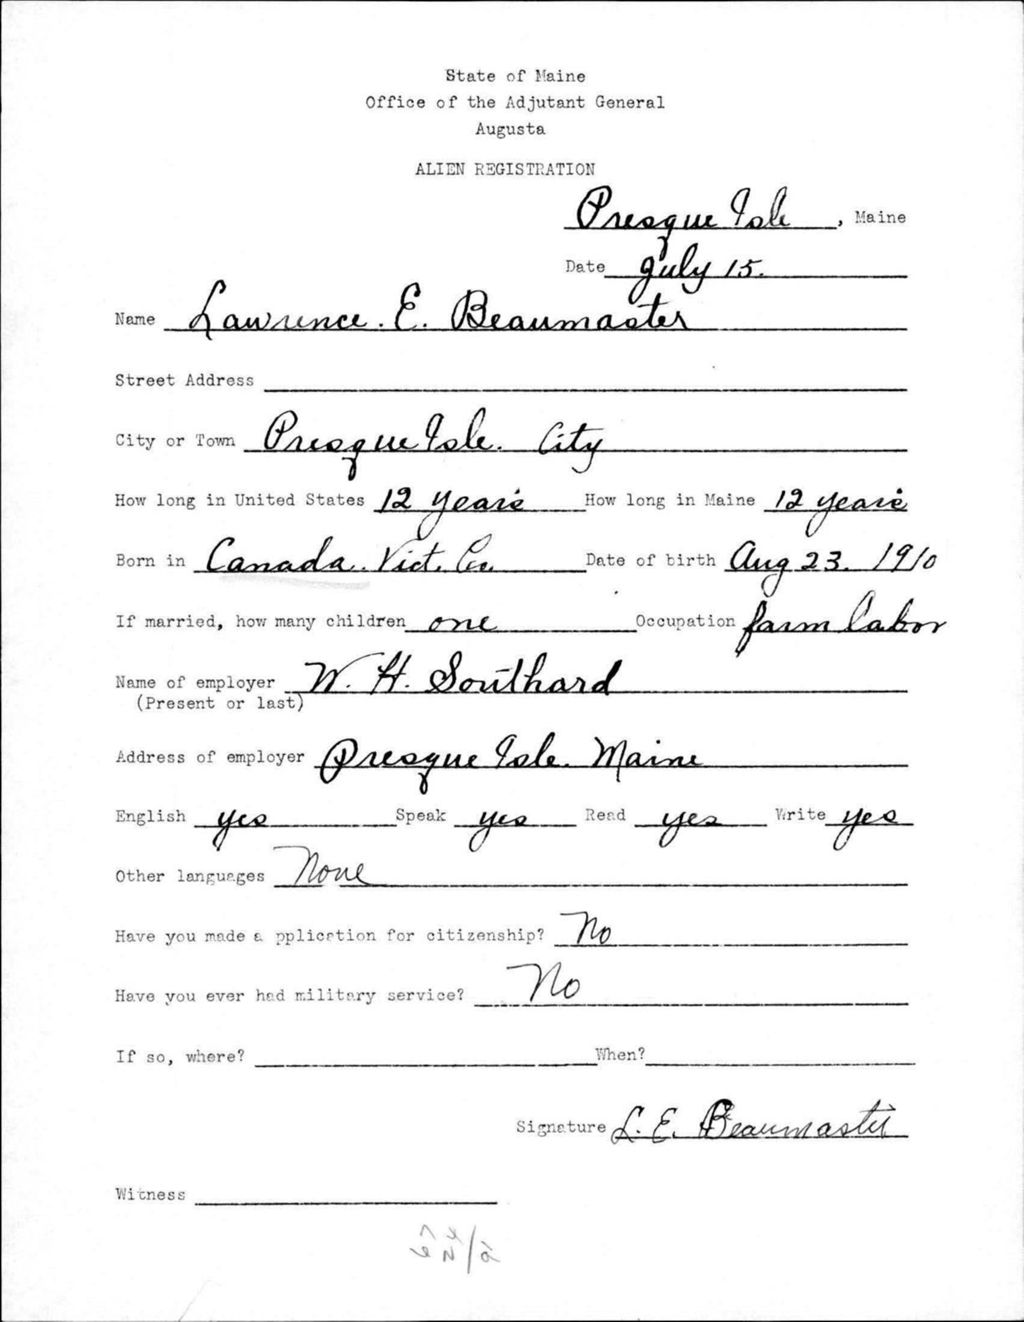 State of Maine
Office of the Adjutant General
Augusta
ALIEN REGISTRATION
Presque Isle, Maine
Date July 15.
Name Lawrence. E. Beaumaster
Street Address
City or Town Presque Isle. City
How long in United States 12 years How long in Maine 12 years
Born in Canada. Vict. Co. Date of birth Aug 23. 1910
If married, how many children one Occupation farm labor
Name of employer W. H. Southard
(Present or last)
Address of employer Presque Isle. Maine
English yes Speak yes Read yes Write yes
Other languages None
Have you made a pplication for citizenship? No
Have you ever had military service? No
If so, where? When?
Signature L. E. Beaumaster
Witness